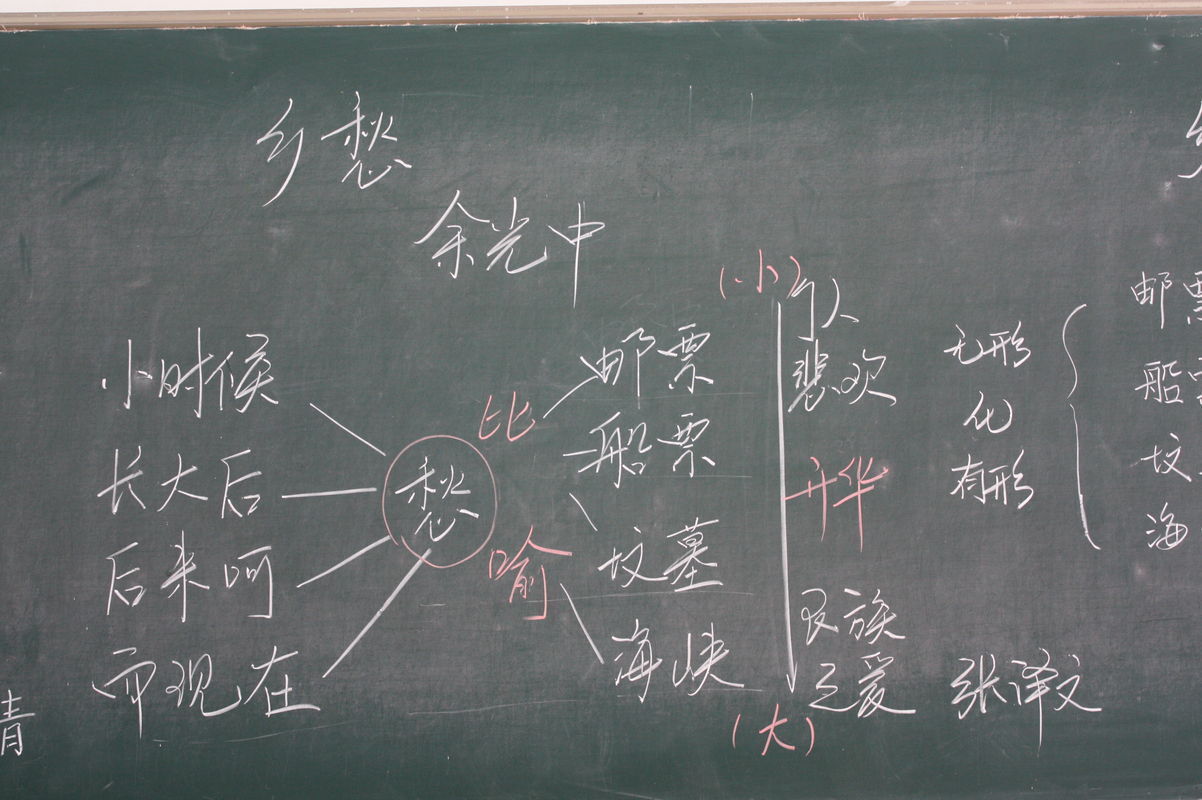 乡愁
余光中
小时候
长大后
后来呵
而现在
愁
比
喻
邮票
船票
坟墓
海峡
(小)
个人
悲欢
升华
民族
之爱
(大)
无形
化
有形
张译文
邮票
船
坟
海
青